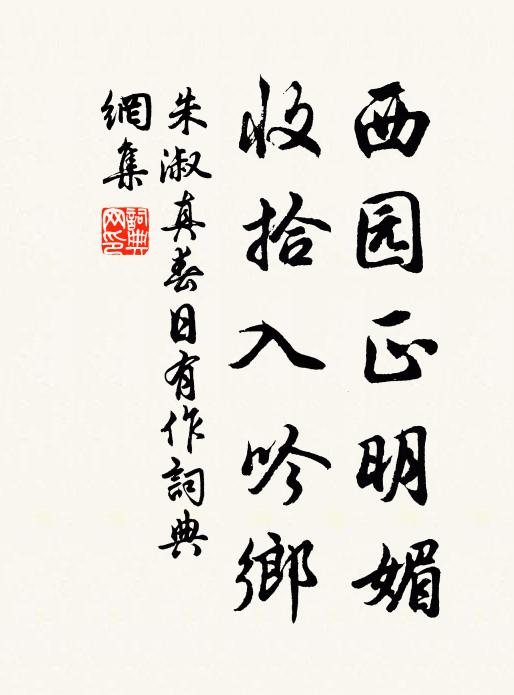 西园正明媚
收拾入吟鄉
朱淑真春日有作詞典
網集
詞典网印